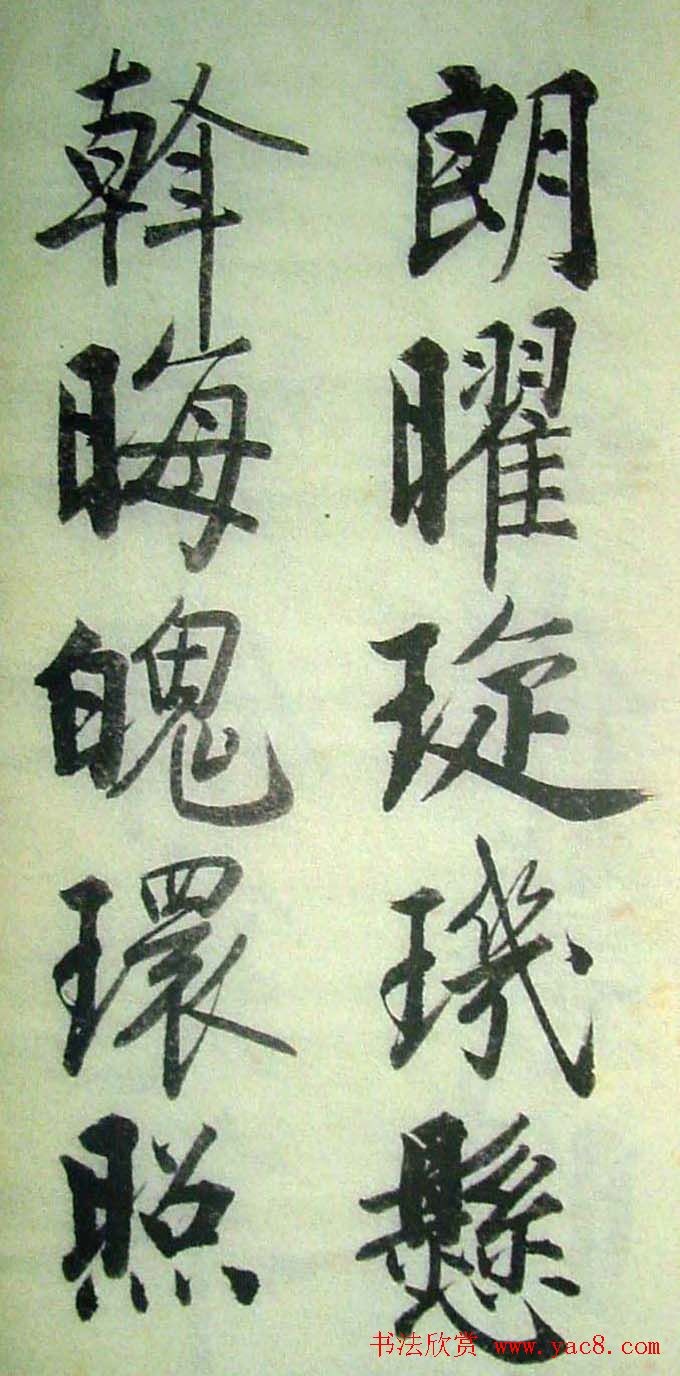 朗曜琁璣懸
斡晦魄環照
书法欣赏 www.yac8.com